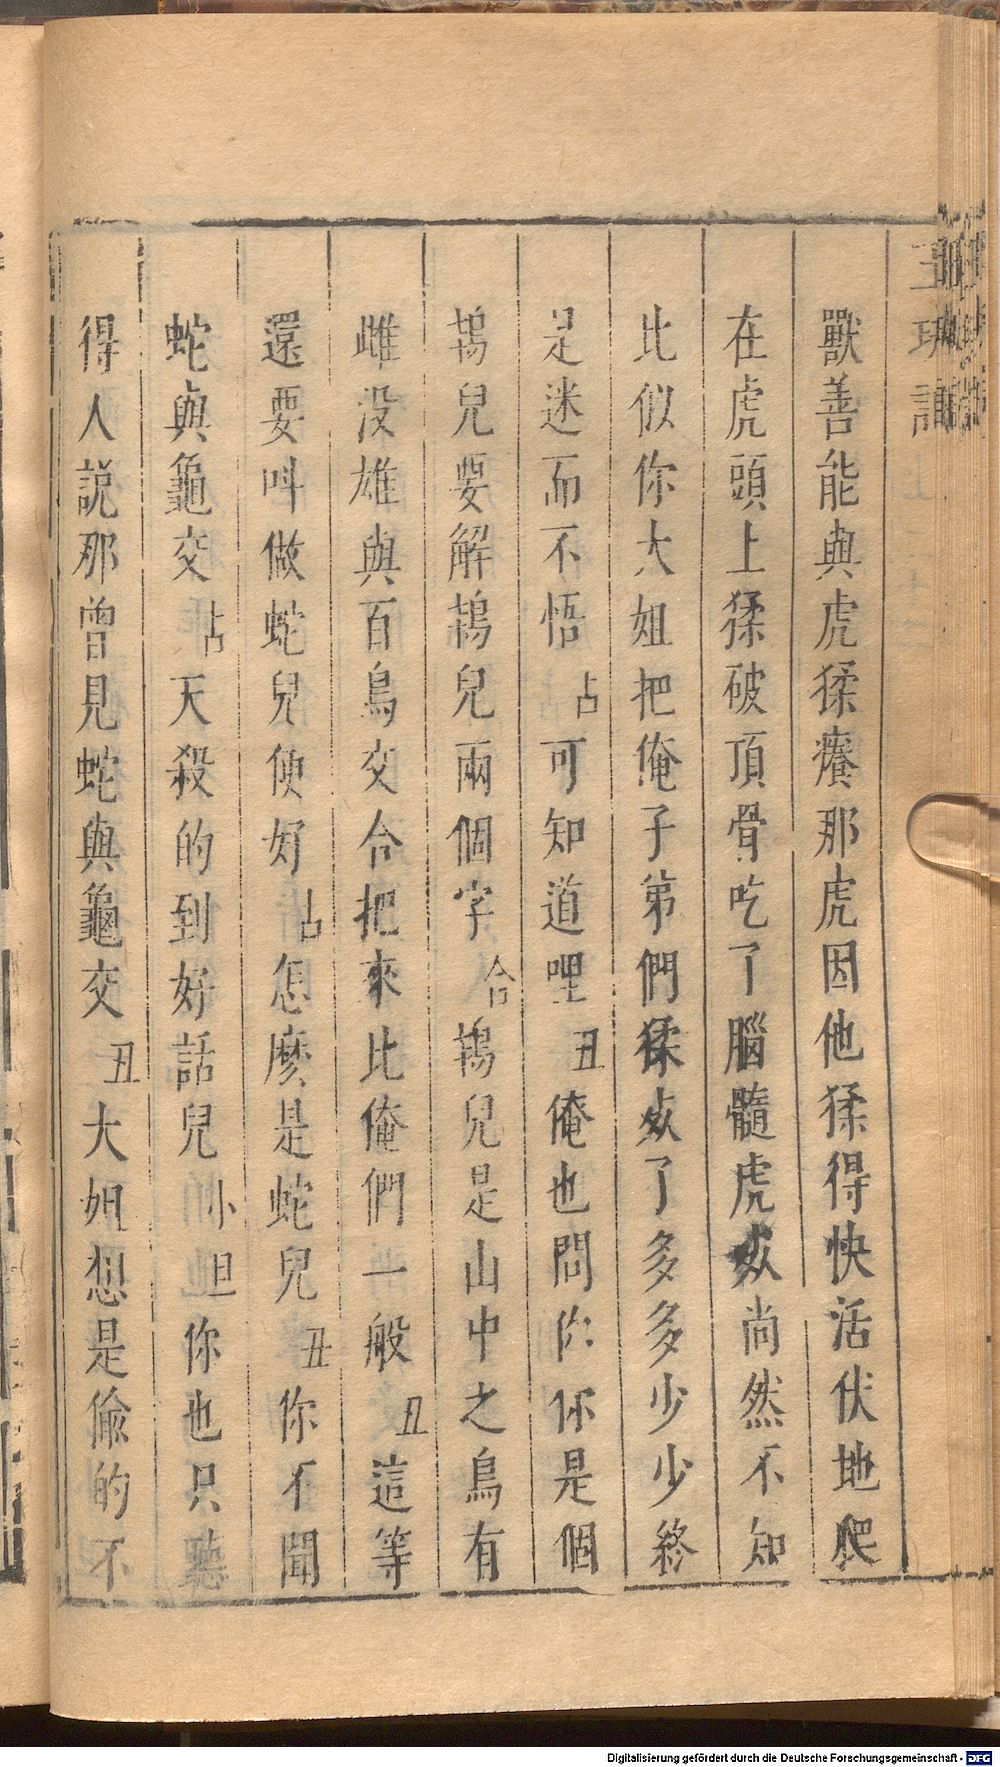 獸善能與虎猱癢那虎因他猱得快活伏地爬
在虎頭上猱破頂骨吃了腦髓虎㱔尚然不知
比似你大姐把俺子弟們猱㱔了多多少少終
是迷而不悟占可知道哩丑俺也問你你是個
鴇兒要解鴇兒兩個字合鴇兒是山中之鳥有
雌没雄與百鳥交合把來比俺們一般丑這等
還要呌做蛇兒便好占怎麽是蛇兒丑你不聞
蛇與龜交占天殺的到好話兒小旦你也只聽
得人説那曾見蛇與龜交丑大姐想是偸的不
Digitalisierung gefördert durch die Deutsche Forschungsgemeinschaft - DFG